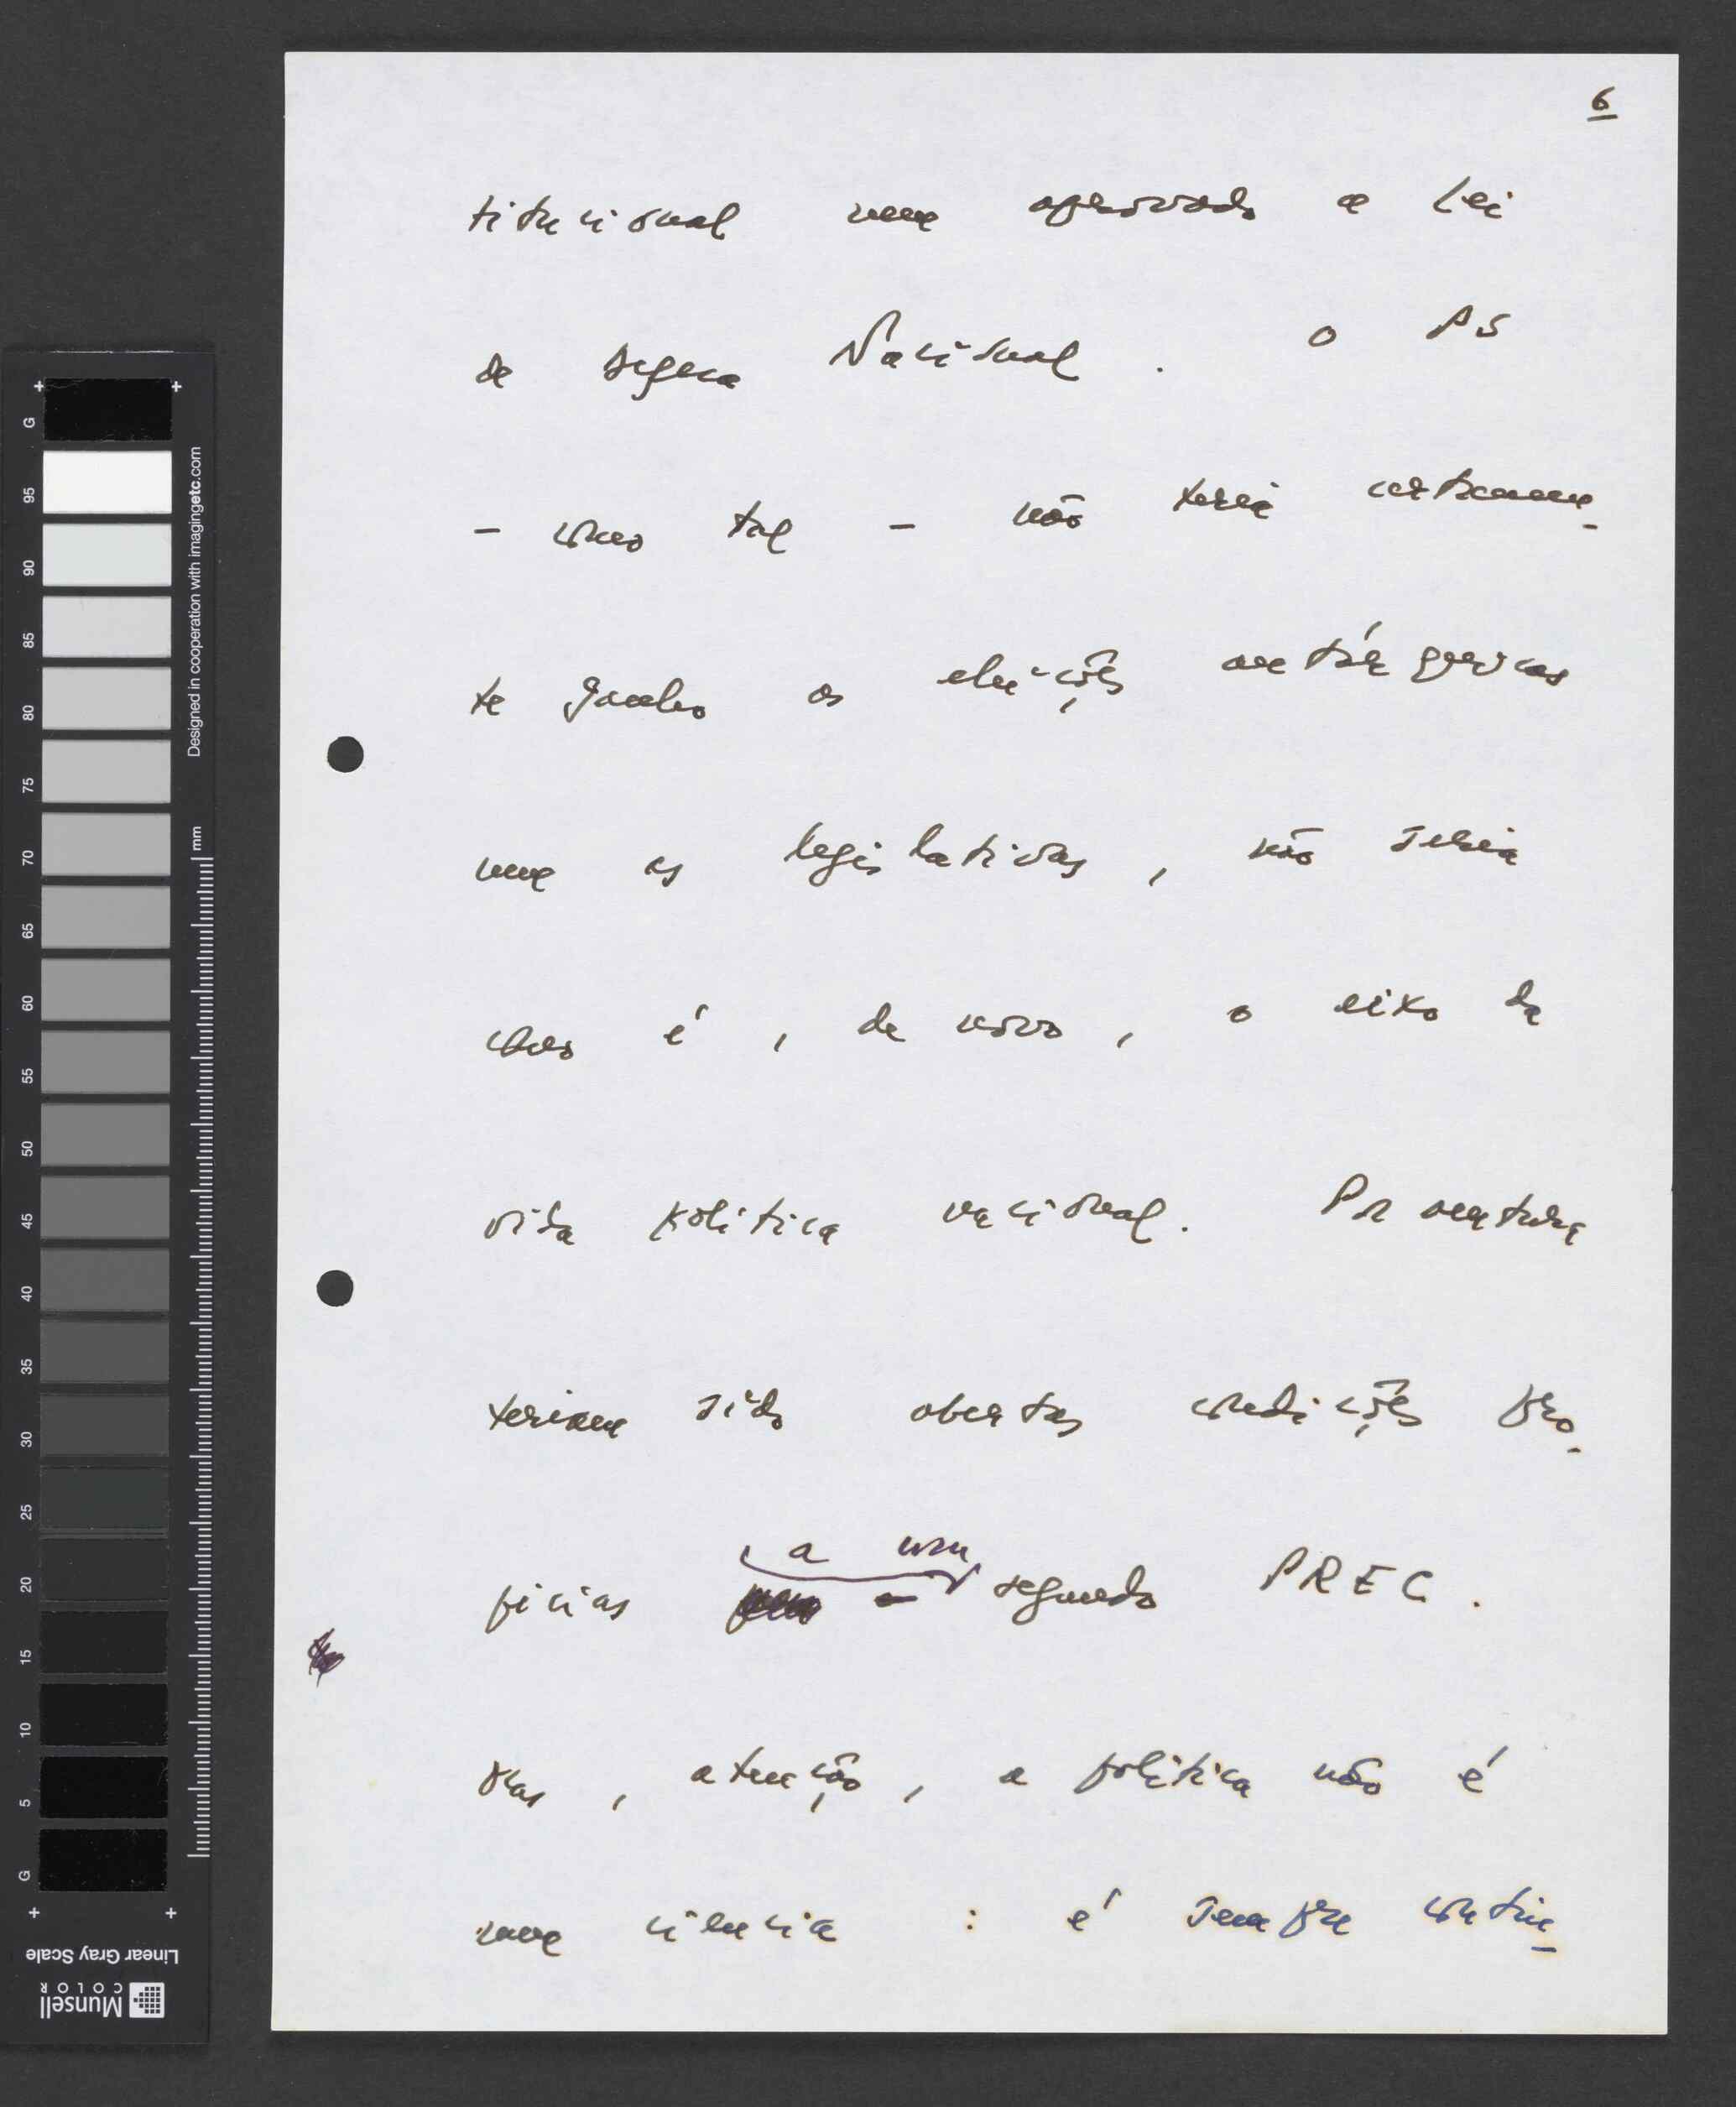 6
titucional nem aprovado a Lei
de Defesa Nacional. O PS
- como tal - não teria certamen-
te ganho as eleições autárquicas
nem as legislativas, não seria
como é, de novo, o eixo da
vida política nacional. Porventura
teriam sido abertas condições pro-
pícias a um segundo PREC.
Mas, atenção, a política não é
uma ciência : é sempre contin-
G
95
90
85
80
75
70
65
60
55
50
45
40
35
30
25
20
15
10
5
G
mm
Designed in cooperation with imagingetc.com
Linear Gray Scale
Munsell
COLOR